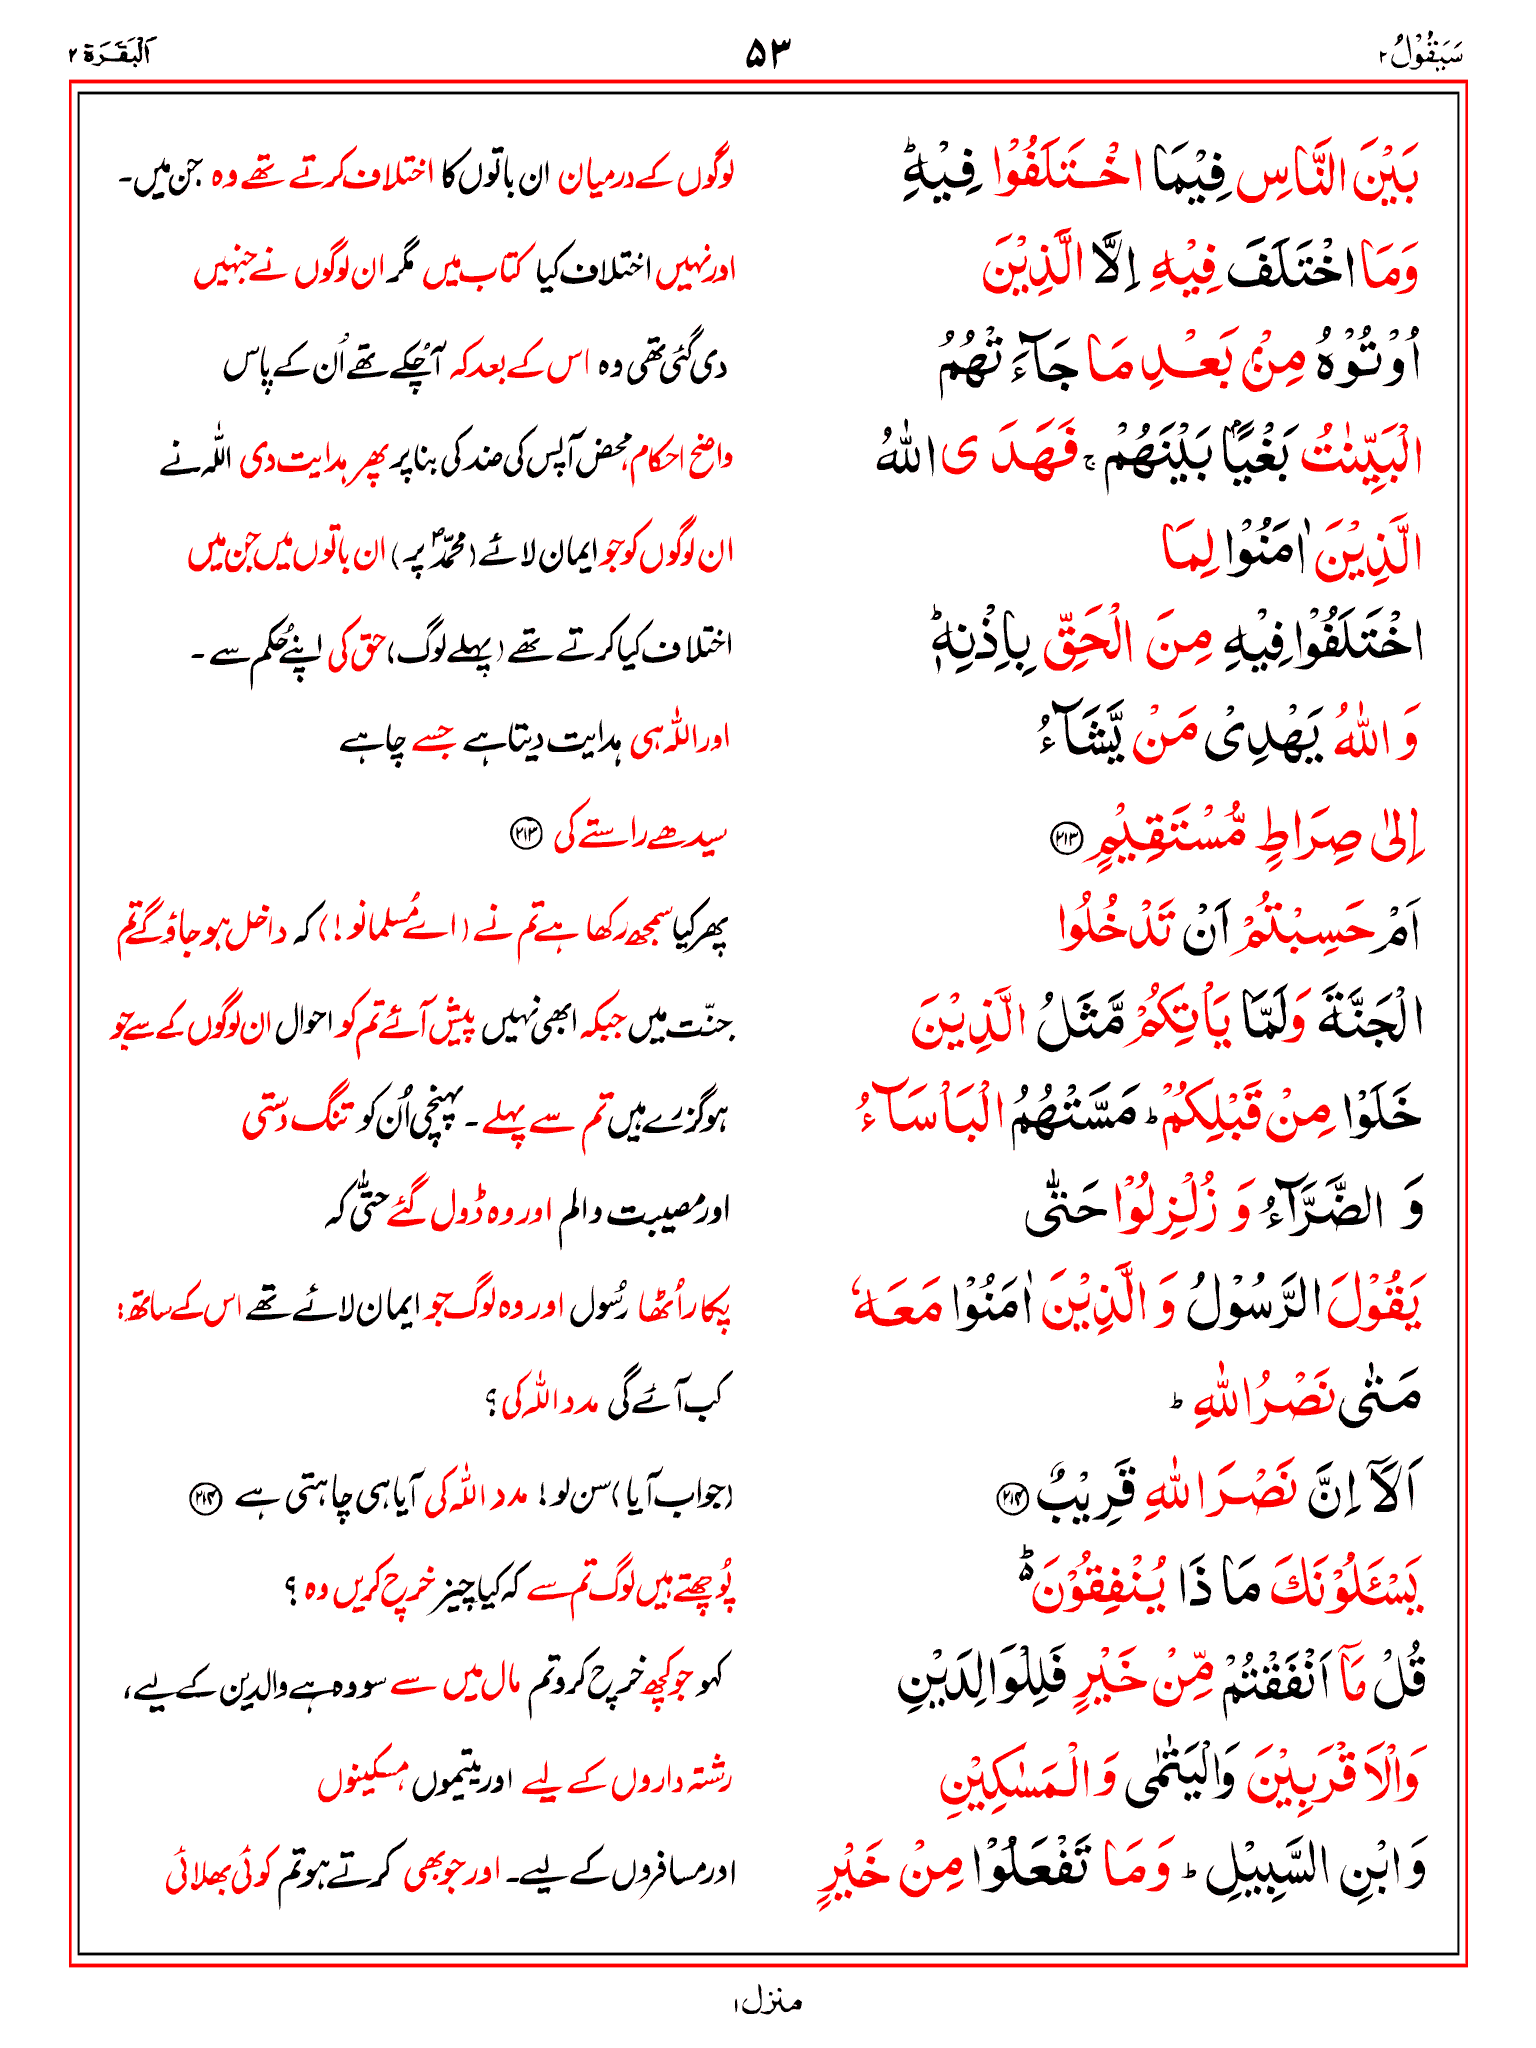 سَيَقُوْلُ ٢
۵۳
اَلْبَقَرَة ٢
بَيْنَ النَّاسِ فِيْمَا اخْتَلَفُوْا فِيْهِ ؕ
لوگوں کے درمیان ان باتوں کا اختلاف کرتے تھے وہ جن میں۔
وَمَا اخْتَلَفَ فِيْهِ اِلَّا الَّذِيْنَ
اور نہیں اختلاف کیا کتاب میں مگر ان لوگوں نے جنہیں
اُوْتُوْهُ مِنْۢ بَعْدِ مَا جَآءَتْهُمُ
دی گئی تھی وہ اس کے بعد کہ آچُکے تھے اُن کے پاس
الْبَيِّنٰتُ بَغْيًۢا بَيْنَهُمْ ۚ فَهَدَى اللّٰهُ
واضح احکام، محض آپس کی ضد کی بنا پر پھر ہدایت دی اللہ نے
الَّذِيْنَ اٰمَنُوْا لِمَا
ان لوگوں کو جو ایمان لائے (محمدؐ پر) ان باتوں میں جن میں
اخْتَلَفُوْا فِيْهِ مِنَ الْحَقِّ بِاِذْنِهٖ ؕ
اختلاف کیا کرتے تھے (پہلے لوگ) حق کی اپنے حُکم سے ۔
وَ اللّٰهُ يَهْدِيْ مَنْ يَّشَآءُ
اور اللہ ہی ہدایت دیتا ہے جسے چاہے
اِلٰى صِرَاطٍ مُّسْتَقِيْمٍ ﴿۲۱۳﴾
سیدھے راستے کی ﴿۲۱۳﴾
اَمْ حَسِبْتُمْ اَنْ تَدْخُلُوا
پھر کیا سمجھ رکھا ہے تم نے (اے مُسلمانو!) کہ داخل ہو جاؤ گے تم
الْجَنَّةَ وَلَمَّا يَاْتِكُمْ مَّثَلُ الَّذِيْنَ
جنّت میں جبکہ ابھی نہیں پیش آئے تم کو احوال ان لوگوں کے سے جو
خَلَوْا مِنْ قَبْلِكُمْ ؕ مَسَّتْهُمُ الْبَاْسَآءُ
ہو گزرے ہیں تم سے پہلے ۔ پہنچی اُن کو تنگ دستی
وَ الضَّرَّآءُ وَ زُلْزِلُوْا حَتّٰى
اور مصیبت و الم اور وہ ڈول گئے حتّٰی کہ
يَقُوْلَ الرَّسُوْلُ وَ الَّذِيْنَ اٰمَنُوْا مَعَهٗ
پکار اُٹھا رسُول اور وہ لوگ جو ایمان لائے تھے اس کے ساتھ:
مَتٰى نَصْرُ اللّٰهِ ؕ
کب آئے گی مدد اللہ کی؟
اَلَآ اِنَّ نَصْرَ اللّٰهِ قَرِيْبٌ ﴿۲۱۴﴾
(جواب آیا) سن لو! مدد اللہ کی آیا ہی چاہتی ہے ﴿۲۱۴﴾
يَسْـَٔلُوْنَكَ مَا ذَا يُنْفِقُوْنَ ؕ
پُوچھتے ہیں لوگ تم سے کہ کیا چیز خرچ کریں وہ ؟
قُلْ مَآ اَنْفَقْتُمْ مِّنْ خَيْرٍ فَلِلْوَالِدَيْنِ
کہو جو کچھ خرچ کرو تم مال میں سے سو وہ ہے والدین کے لیے،
وَالْاَقْرَبِيْنَ وَالْيَتٰمٰى وَ الْمَسٰكِيْنِ
رشتہ داروں کے لیے اور یتیموں، مسکینوں
وَ ابْنِ السَّبِيْلِ ؕ وَمَا تَفْعَلُوْا مِنْ خَيْرٍ
اور مسافروں کے لیے۔ اور جو بھی کرتے ہو تم کوئی بھلائی
منزل ۱